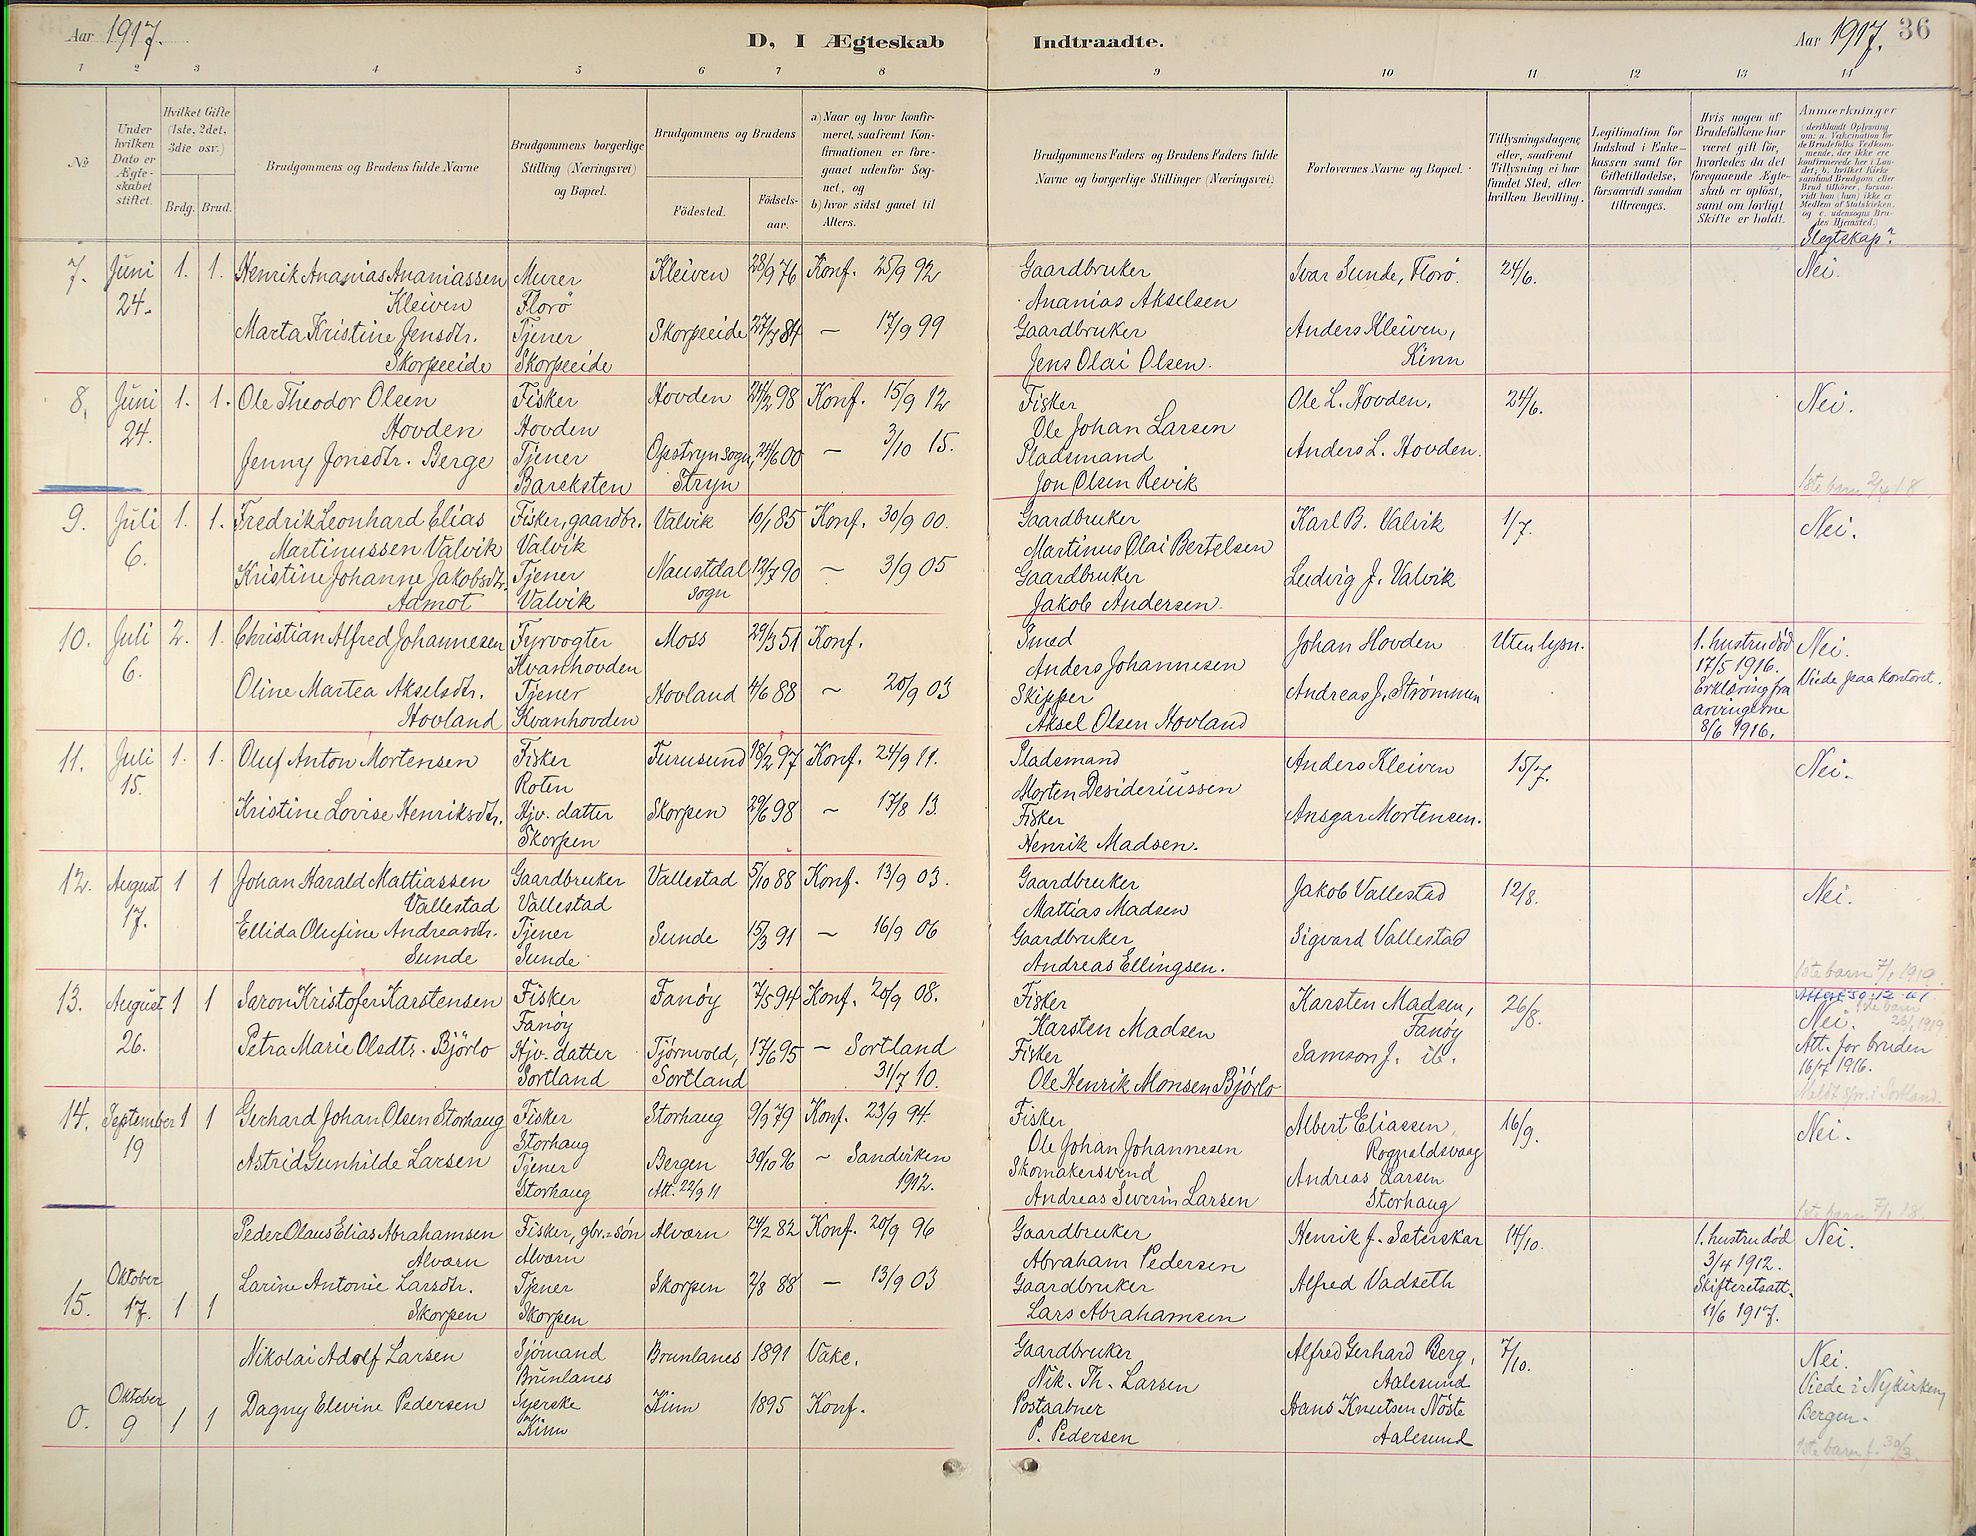 Aar 1917. D, I Ægteskab Indtraadte. Aar 1917. 36
1 2 3 4 5 6 7 8 9 10 11 12 13 14
No.
Under hvilken Dato er Ægte-skabet stiftet.
Hvilket Gifte (1ste, 2det, 3die osv.)
Brdg. Brud.
Brudgommens og Brudens fulde Navne
Brudgommens borgerlige Stilling (Næringsvei) og Bopæl.
Brudgommens og Brudens
Födested. Födsels-aar.
a) Naar og hvor konfir-meret, saafremt Kon-firmationen er fore-gaaet udenfor Sog-net, og
b) hvor sidst gaaet til Alters.
Brudgommens Faders og Brudens Faders fulde Navne og borgerlige Stillinger (Næringsvei)
Forlovernes Navne og Bopæl.
Tillysningsdagene, eller, saafremt Tillysning ei har fundet Sted, efter hvilken Bevilling.
Legitimation for Indskud i Enke-kassen samt for Giftetilladelse, forsaavidt saadan tiltrænges.
Hvis nogen af Brudefolkene har været gift för, hvorledes da det foregaaende Ægte-skab er oplöst, samt om lovligt Skifte er holdt.
Anmærkninger
(deriblandt Oplysning om: a. Vakcination for de Brudefolks Vedkom-mende, der ikke ere konfirmerede her i Lan-det; b. hvilket Kirke-samfund Brudgom eller Brud tilhörer, forsaa-vidt han (hun) ikke er Medlem af Statskirken, og c. udensogns Bru-des Hjemsted.
Slegtskap?
7. Juni 1. 1. Henrik Ananias Ananiassen Murer Kleiven 28/9 76 Konf. 25/9 92 Gaardbruker Ivar Sunde, Florö. 24/6. Nei.
24. Kleiven Florö Ananias Akselsen
Marta Kristine Jensdtr. Tjener Skorpeeide 27/7 84 — 17/9 99 Gaardbruker Anders Kleiven,
Skorpeeide Skorpeeide Jens Olai Olsen. Kinn
8. Juni 1. 1. Ole Theodor Olsen Fisker Hovden 24/2 98 Konf. 15/9 12 Fisker Ole L. Hovden. 24/6. Nei.
24. Hovden Hovden Ole Johan Larsen
Jenny Jonsdtr. Berge Tjener Opstryn sogn, 24/6 00 — 3/10 15. Pladsmand Anders L. Hovden.
Bareksten Stryn Jon Olsen Revik 1ste barn 2/4 18.
9. Juli 1. 1. Fredrik Leonhard Elias Fisker, gaardbr. Valvik 10/1 85 Konf. 30/9 00. Gaardbruker Karl B. Valvik 1/7. Nei.
6. Martinussen Valvik Valvik Martinus Olai Bertelsen
Kristine Johanne Jakobsdtr. Tjener Naustdal 12/7 90 — 3/9 05 Gaardbruker Ludvig J. Valvik
Aamot Valvik sogn Jakob Andersen.
10. Juli 2. 1. Christian Alfred Johannesen Fyrvogter Moss 29/3 51 Konf. Smed Johan Hovden Uten lysn. 1. hustru död Nei.
6. Kvanhovden Anders Johannesen 17/5 1916. Viede paa Kontoret.
Oline Martea Akselsdtr. Tjener Hovland 4/6 88 ~ 20/9 03 Skipper Andreas J. Strømmen Erklæring fra
Hovland Kvanhovden Aksel Olsen Hovland arvingerne
8/6 1916.
11. Juli 1. 1. Oluf Anton Mortensen Fisker Furusund 18/2 97 Konf. 24/9 11. Pladsmand Anders Kleiven 15/7. Nei.
15. Roten Morten Desideriussen
Kristine Lovise Henriksdtr. Hjv. datter Skorpen 29/6 98 ~ 17/8 13. Fisker Ansgar Mortensen.
Skorpen Henrik Madsen.
12. August 1 1 Johan Harald Mattiassen Gaardbruker Vallestad 5/10 88 Konf. 13/9 03. Gaardbruker Jakob Vallestad 12/8. Nei.
17. Vallestad Vallestad Mattias Madsen
Ellida Olufine Andreasdtr. Tjener Sunde 15/3 91 — 16/9 06 Gaardbruker Sigvard Vallestad
Sunde Sunde Andreas Ellingsen. 1ste barn 7/1 1919.
13. August 1 1 Saron Kristofer Karstensen Fisker Fanöy 7/5 94 Konf. 20/9 08. Fisker Karsten Madsen, 26/8. Nei. 1ste barn
26. Fanöy Karsten Madsen Fanöy 1919
Petra Marie Olsdtr. Björlo Hjv. datter Tjörnvold, 17/6 95 — Sortland Fisker Samson J. ib. Att. for bruden
Sortland Sortland 31/7 10. Ole Henrik Monsen Björlo 16/7 1916.
Meldt spr. i Sortland.
14. September 1 1 Gerhard Johan Olsen Storhaug Fisker Storhaug 9/9 79 Konf. 23/9 94. Fisker Albert Eliassen, 16/9. Nei.
19 Storhaug Ole Johan Johannesen Rognaldsvaag
Astrid Gunhilde Larsen Tjener Bergen 30/10 96 ~ Sandviken Skomakersvend Andreas Larsen
Storhaug Att. 22/9 11 1912. Andreas Severin Larsen Storhaug 1ste barn 7/1 18.
Peder Olaus Elias Abrahamsen Fisker, gbr.=sön Alvorn 24/2 82 Konf. 20/9 96 Gaardbruker Henrik J. Sæterskar 14/10. 1. hustru död Nei.
Alvorn Alvorn Abraham Pedersen 3/4 1912.
Oktober Larine Antonie Larsdtr. Tjener Skorpen 2/8 88 — 13/9 03 Gaardbruker Alfred Vadseth Skifteretsatt.
15. 17. 1 1 Skorpen Skorpen Lars Abrahamsen 11/6 1917.
Nikolai Adolf Larsen Sjömand Brunlanes 1891 Vakc. Gaardbruker Alfred Gerhard Berg, 7/10. Nei.
Brunlanes Nik. Th. Larsen Aalesund Viede i Nykirken,
Oktober Dagny Elevine Pedersen Syerske Kinn 1895 Konf. Postaabner Hans Knutsen Nöste Bergen.
0. 9 1 1 Kinn P. Pedersen Aalesund
1ste barn f. 30/3.